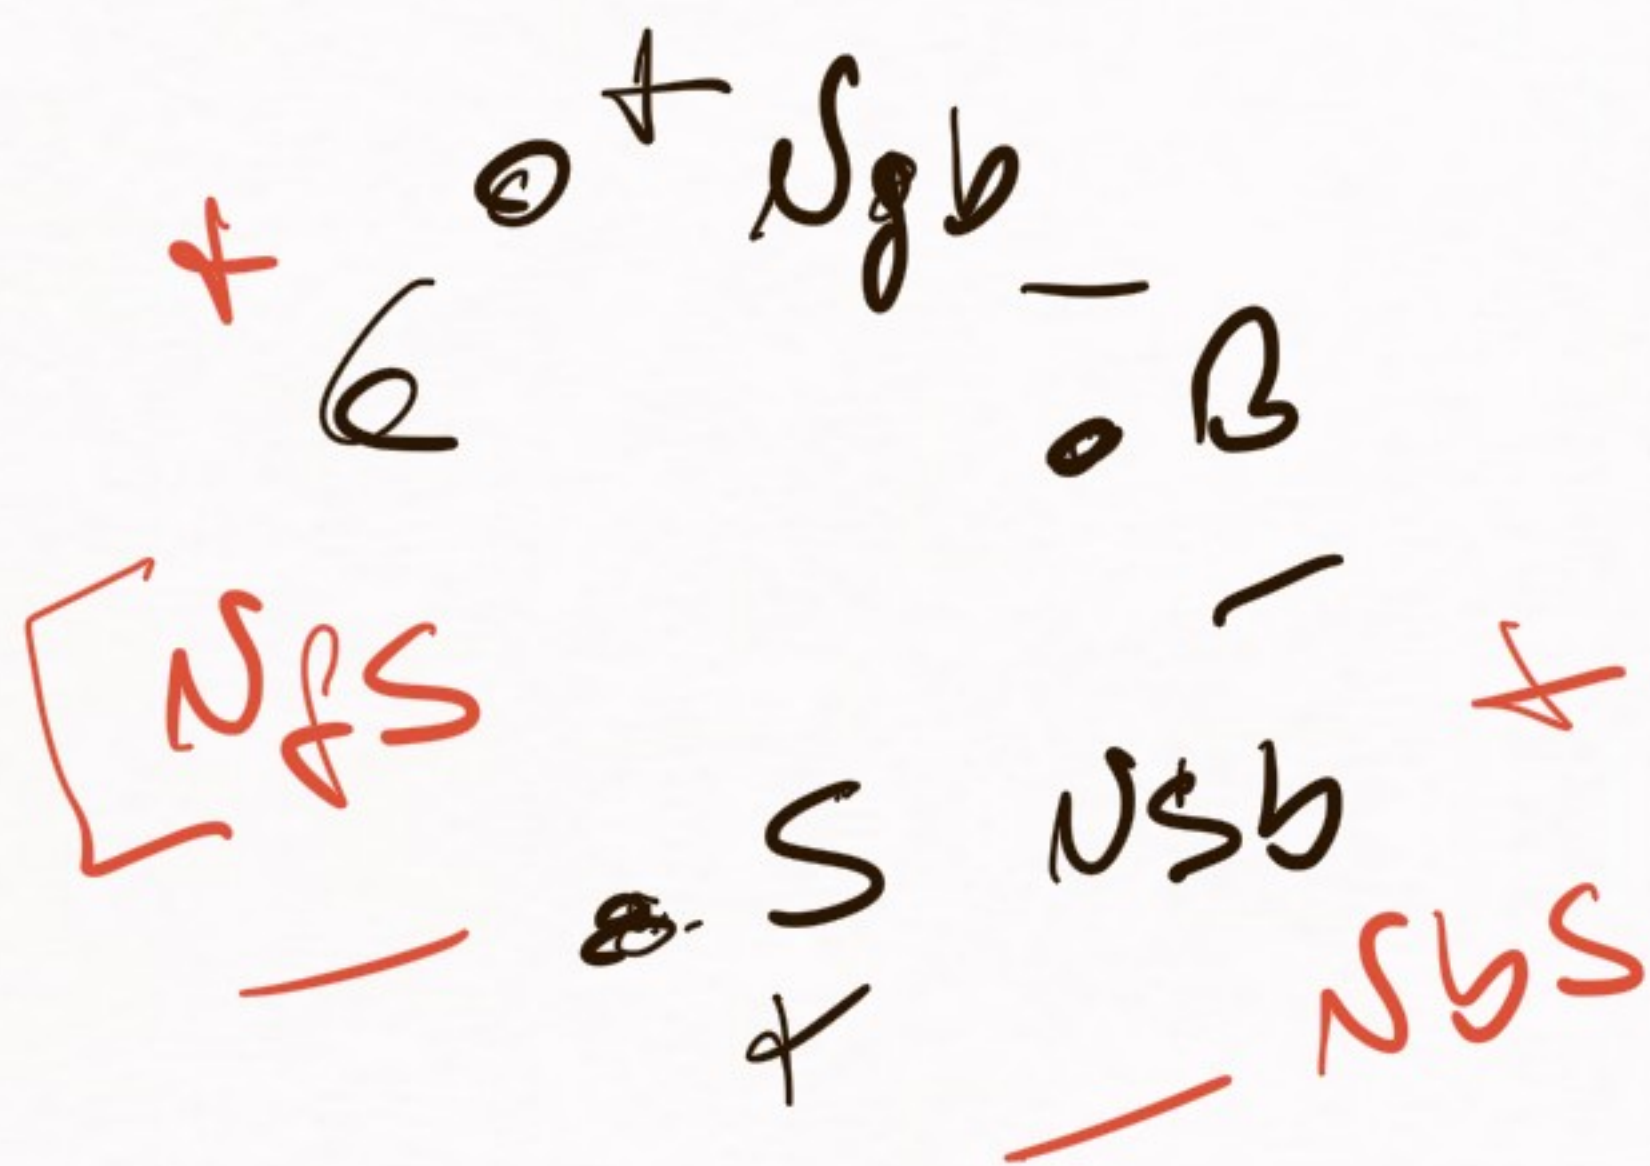 + Ngb
+
−
B
−
NfS
+
S
Nsb
−
NbS
+
−